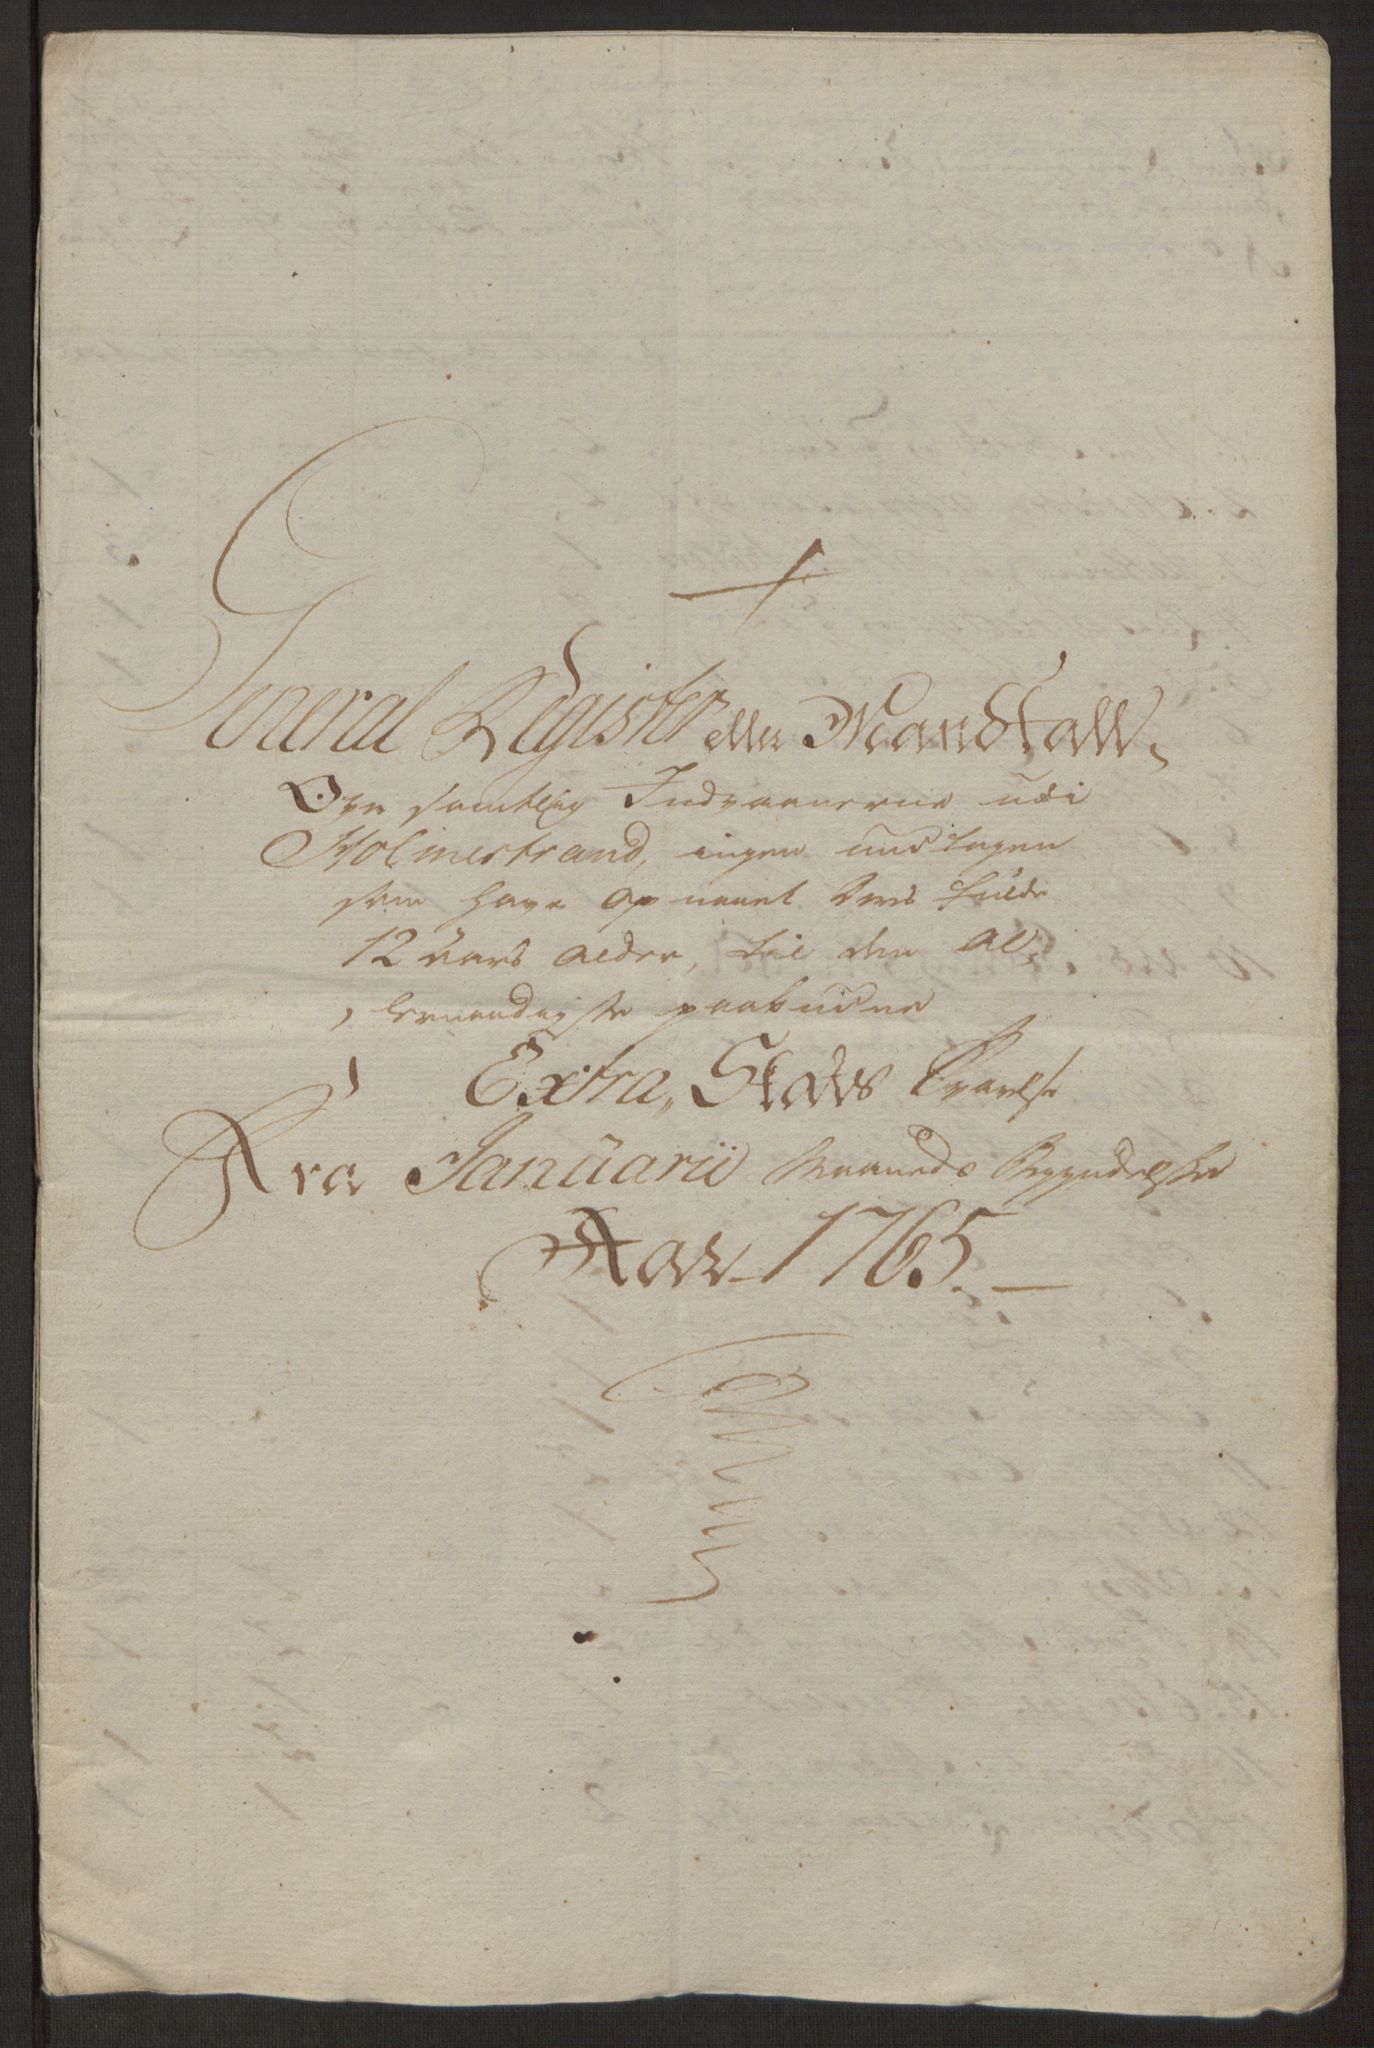 General Register eller Mandtall,
Over samtlig Indvaanerne udi
Holmestrand, ingen undtagen
som have opnaaet deres fulde
12 aars alder, til den al,,
,, lernaadigste paabudne
Extra,, Skatts Svarelse
Fra Januarii Maaneds Begyndelse
Aar 1765.